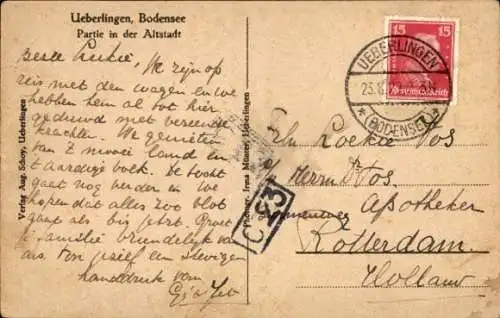 Ueberlingen, Bodensee
Partie in der Altstadt
Beste Loekie, We zijn op
reis met den wagen en we
hebben hem al tot hier
geduwd met vereende
krachten. We genieten
van 't mooie land en
't aardige boek. De tocht
gaat nog verder en we
hopen dat alles zoo blot
gaat als bij jetzt. Groet
je familie vriendelijk van
ons. Een stevigen
handdruk van
Verlag Aug. Schoy, Ueberlingen
Photogr. Irma Münzer, Ueberlingen
15 15
Deutsches Reich
UEBERLINGEN
(BODENSEE)
Loekie Vos
p/a Herrn D. Vos,
Apotheker
Rotterdam.
Holland
C 23